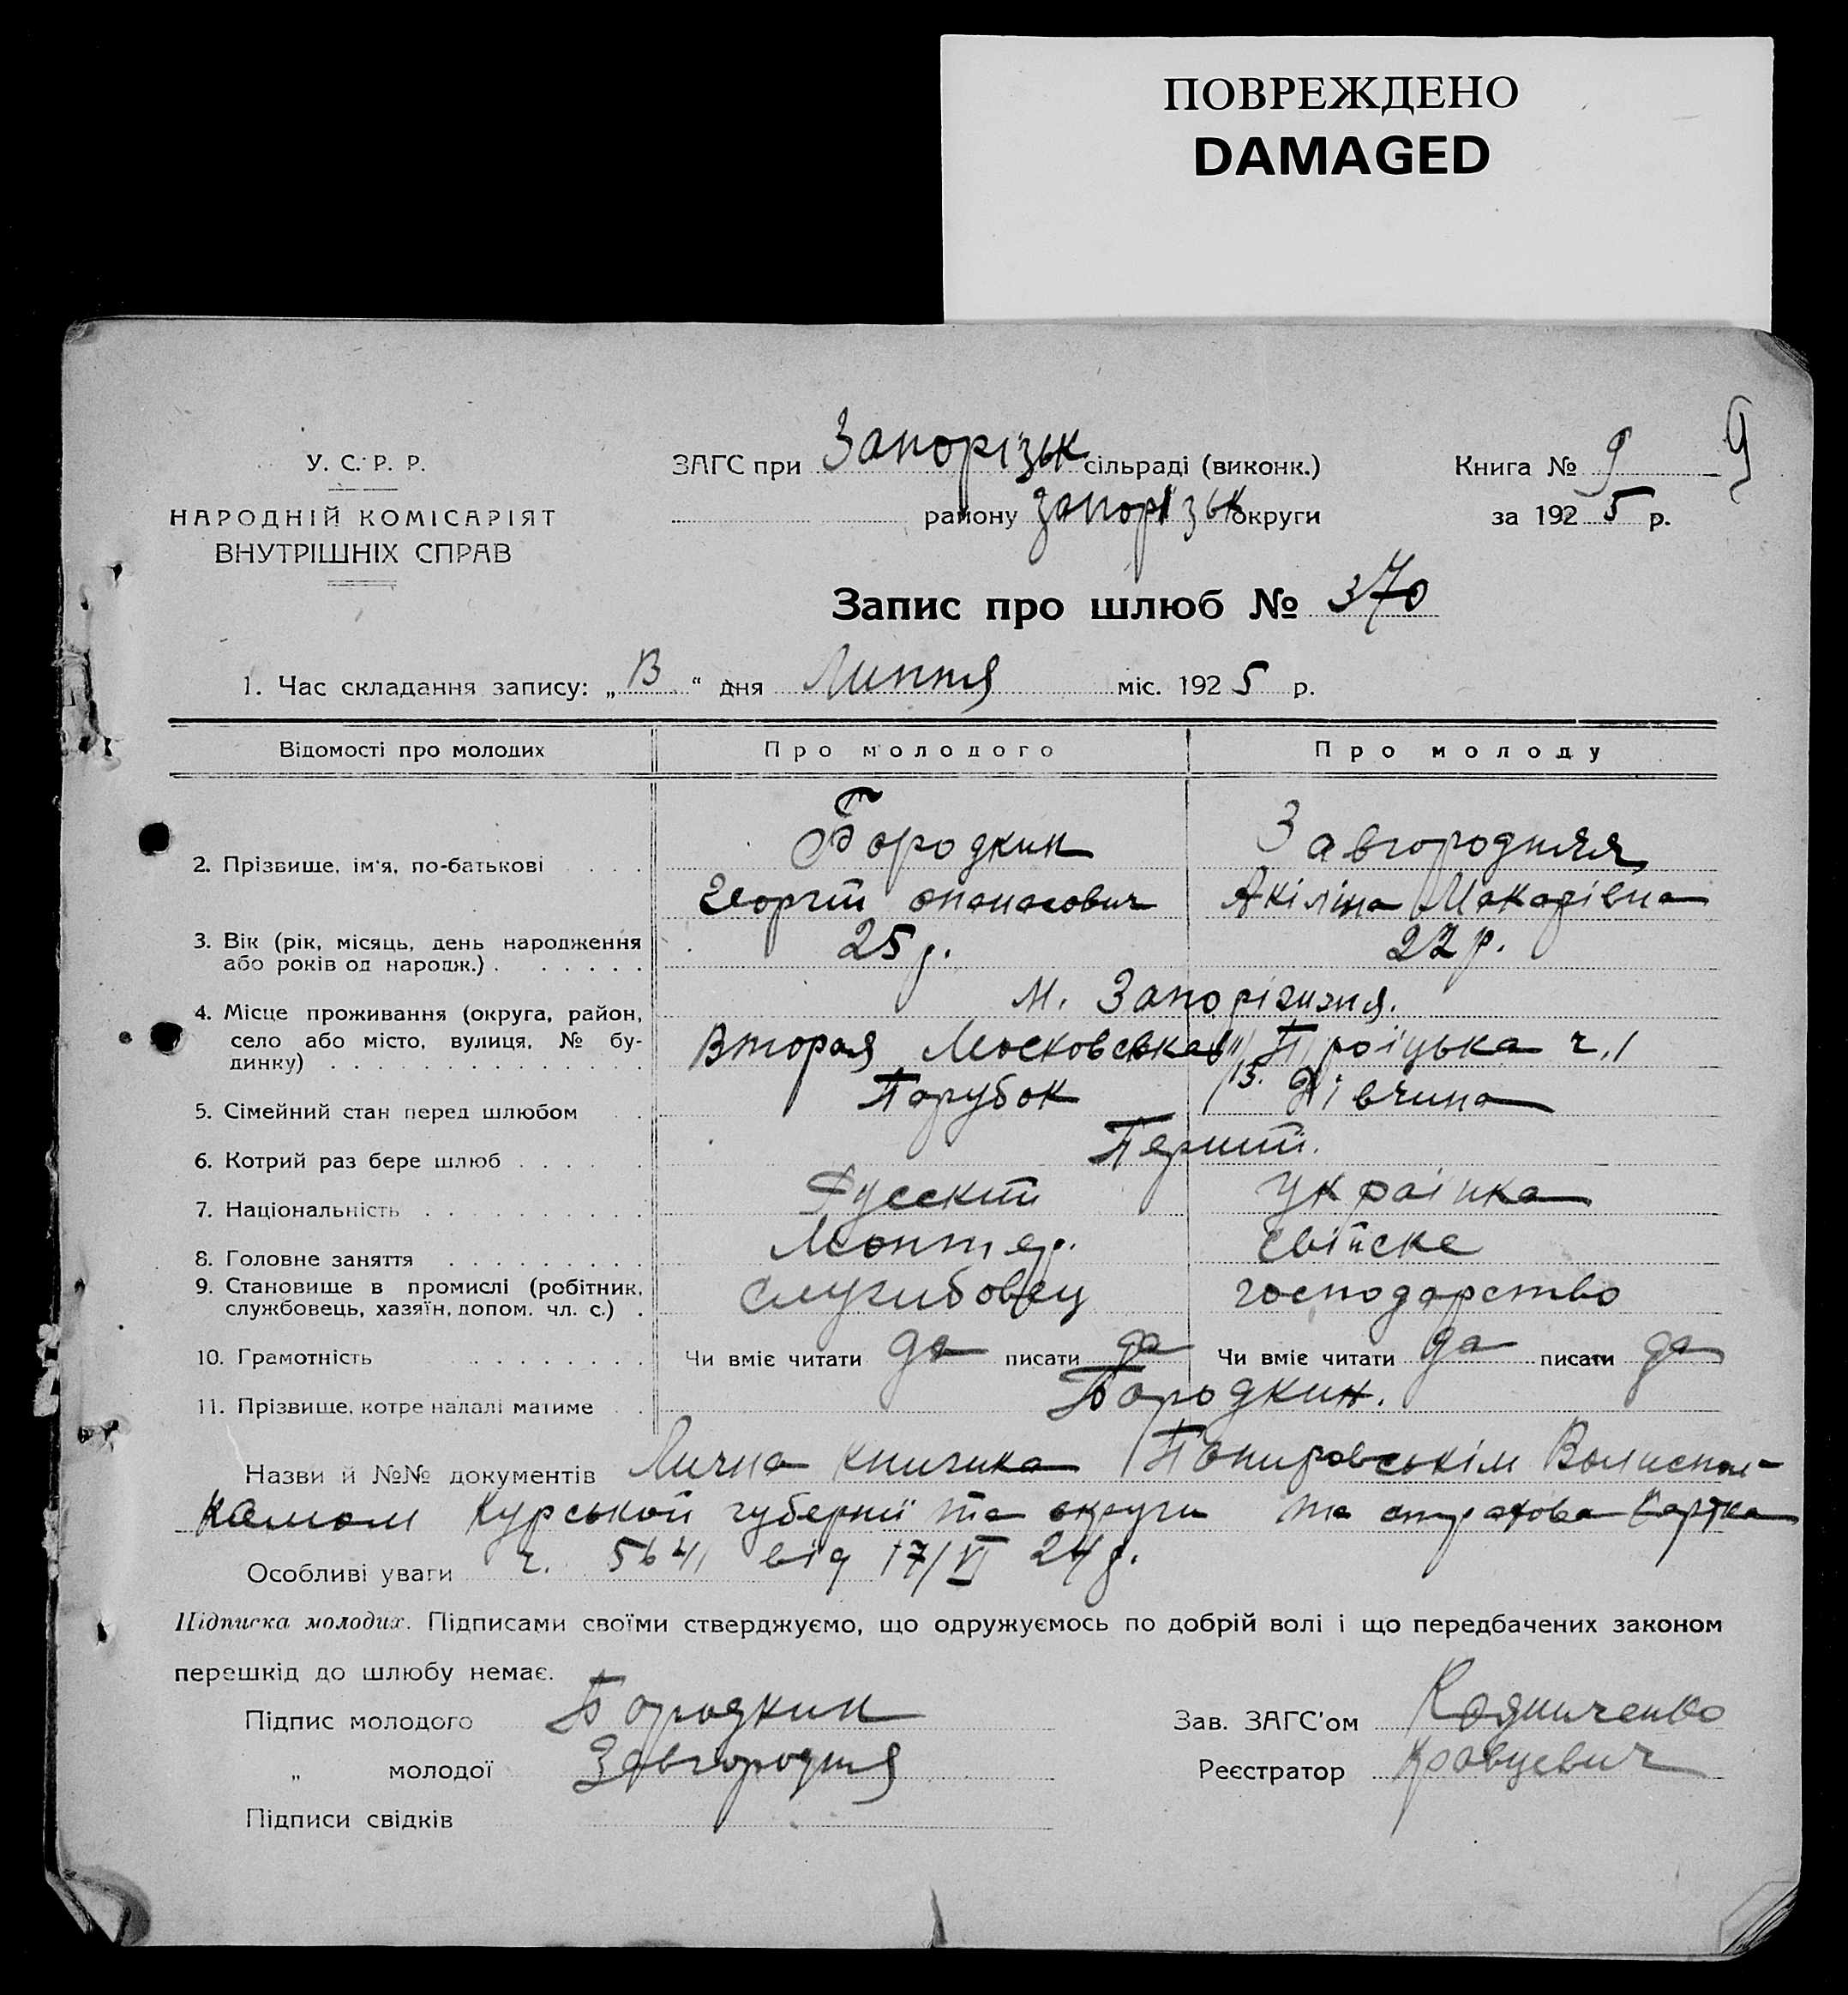 ПОВРЕЖДЕНО
DAMAGED
У. С. Р. Р.
НАРОДНІЙ КОМІСАРІЯТ
ВНУТРІШНІХ СПРАВ
ЗАГС при Запорізьк сільраді (виконк.)
району Запорізьк округи
Книга № 9
9
за 1925 р.
Запис про шлюб № 370
1. Час складання запису: „ “ дня Липня міс. 1925 р.
Відомості про молодих Про молодого Про молоду
2. Прізвище, ім'я, по-батькові Бородкин Завгородняя
Георгій Опанасович Акіліна Макарівна
3. Вік (рік, місяць, день народження 25 р. 22 р.
або років од народж.)
4. Місце проживання (округа, район, м. Запоріжжя.
село або місто, вулиця, № бу- Вторая Московська Троїцька ч. 1
динку) 15.
5. Сімейний стан перед шлюбом Парубок Дівчина
6. Котрий раз бере шлюб Перший.
7. Національність Русский Українка
8. Головне заняття Монтер. свійске
9. Становище в промислі (робітник, службовец господарство
службовець, хазяїн, допом. чл. с.)
10. Грамотність Чи вміє читати да писати да Чи вміє читати да писати да
11. Прізвище, котре надалі матиме Бородкин.
Назви й №№ документів Лична книжка Волиспол-
комом Курськой губернії та округи та страхова картка
Особливі уваги ч. 564 від 17/VI 24 р.
Підписка молодих. Підписами своїми стверджуємо, що одружуємось по добрій волі і що передбачених законом
перешкід до шлюбу немає.
Підпис молодого Бородкин
Зав. ЗАГС'ом
„ молодої Завгородня
Реєстратор Кравцевич
Підписи свідків